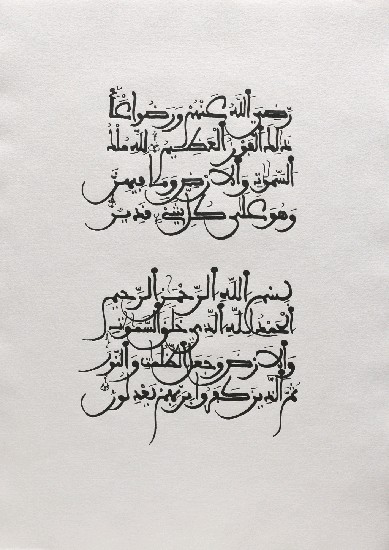 رّضى الله عنهم ورضوا عنه
ذلك الفوز العظيم لله ملك
السموات والارض وما فيهن
وهو على كل شىء قدير
بسم الله الرحمن الرحيم
الحمد لله الذى خلق السموات
والارض وجعل الظلمات والنور
ثم الذين كفروا بربهم يعدلون